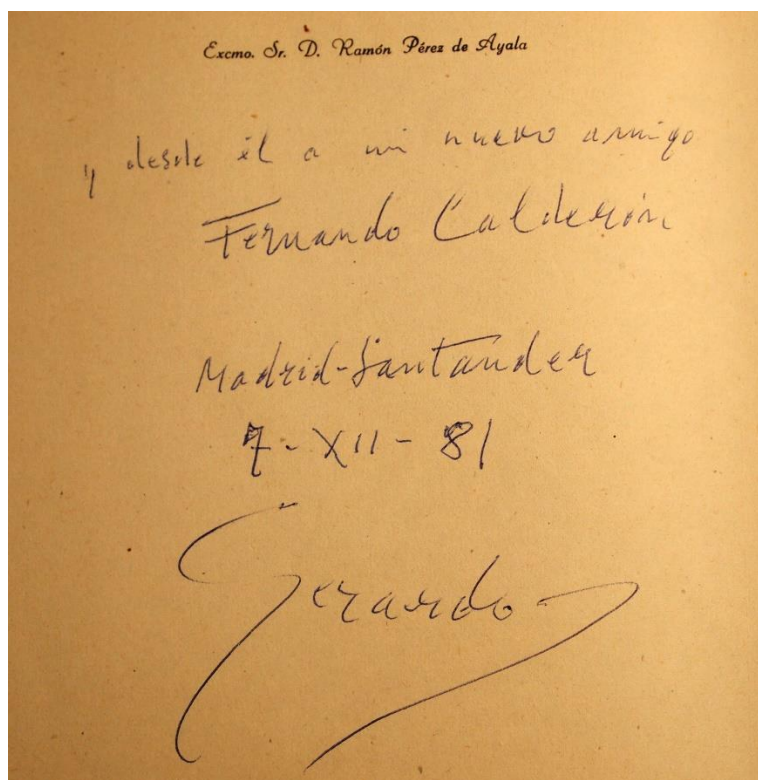 Excmo. Sr. D. Ramón Pérez de Ayala
y desde él a mi nuevo amigo
Fernando Calderón
Madrid-Santander
7-XII-81
Gerardo